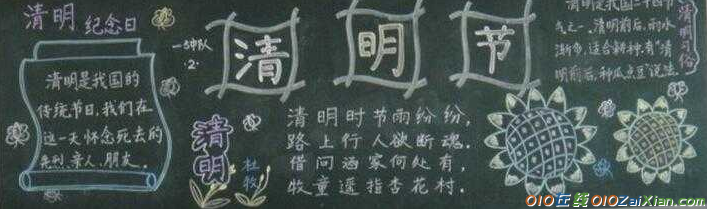 清明 纪念日
清明是我国的
传统节日,我们在
这一天怀念死去的
先烈、亲人、朋友。
一中队
·2·
清 明 节
清明
杜牧
清明时节雨纷纷,
路上行人欲断魂.
借问酒家何处有,
牧童遥指杏花村.
清明是我国二十四节
气之一.清明前后,雨水
渐多,适合耕种,有"清
明前后,种瓜点豆"说法
清明习俗
010在线 010ZaiXian.com